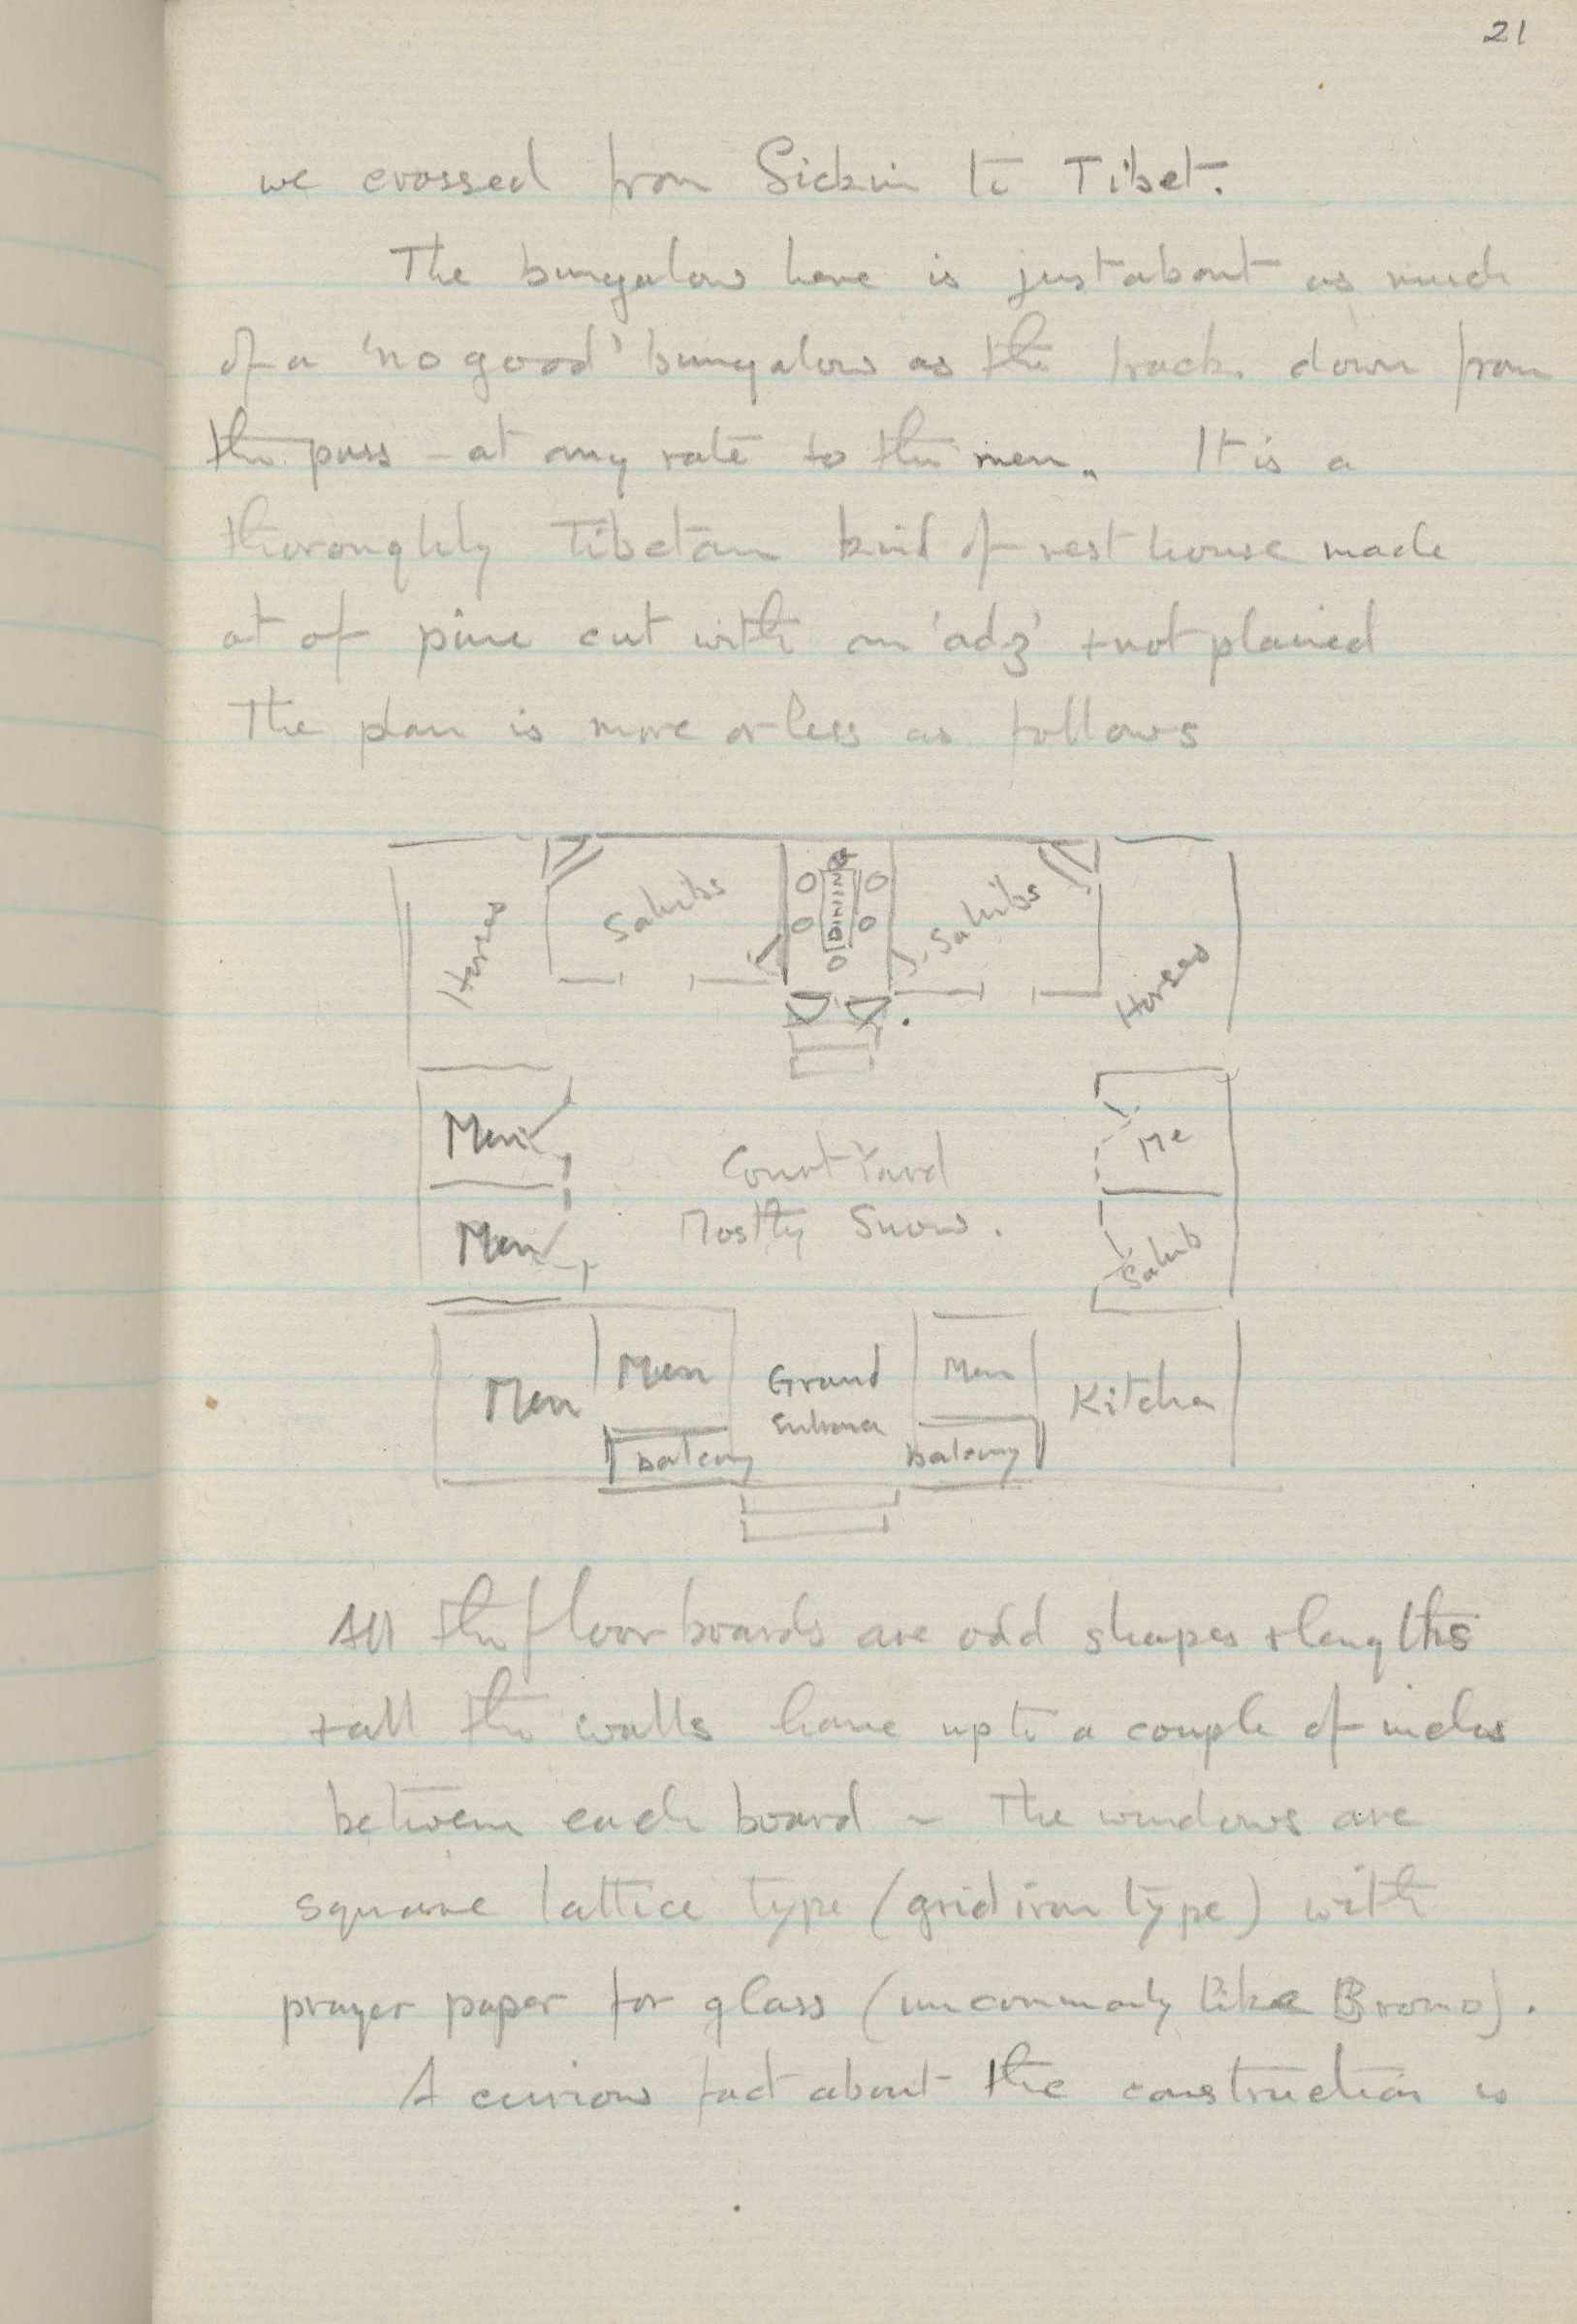 21
we crossed from Sickim to Tibet.
The bungalow here is just about as much
of a 'no good' bungalow as the track down from
the pass - at any rate to the men. It is a
thoroughly Tibetan kind of rest house made
ot of pine cut with an 'adz' + not plained
The plan is more or less as follows
Horses
Sahibs
DINING
Sahibs
Horses
Men
Me
Court Yard
Mostly Snow.
Men
Sahib
Men
Men
Grand
Entrance
Men
Kitchen
Balcony
Balcony
All the floor boards are odd shapes & lengths
+ all the walls have up to a couple of inches
between each board - The windows are
square lattice type (grid iron type) with
prayer paper for glass (uncommonly like Bromo).
A curious fact about the construction is